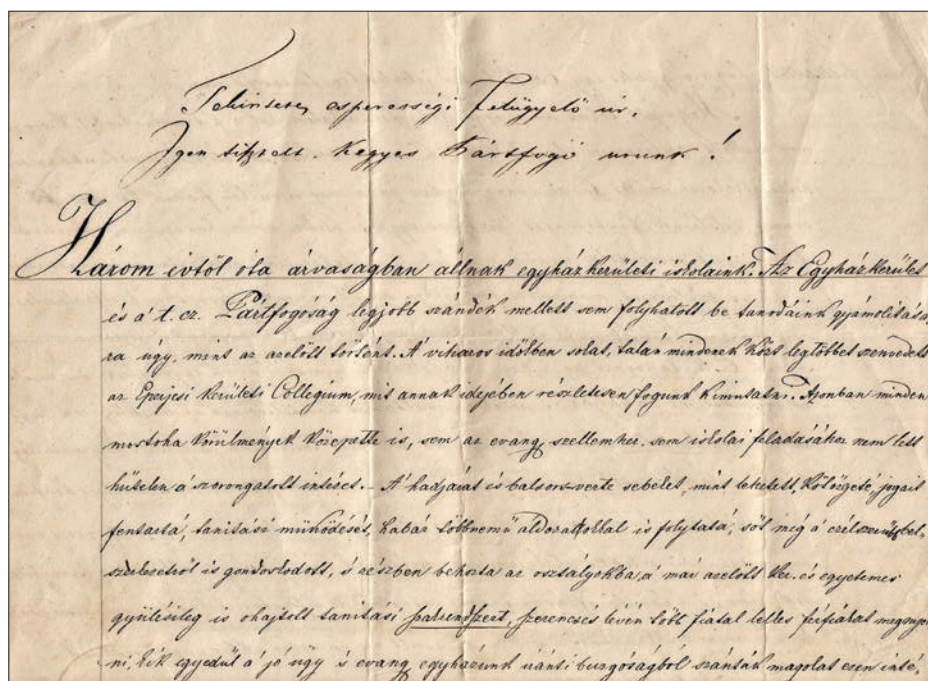 Tekintetes esperességi Felügyelő úr,
Igen tisztelt Kegyes Pártfogó urunk!
Három évtől óta árvaságban állnak egyházkerületi iskoláink. Az Egyházkerület
és a' t. cz. Pártfogóság legjobb szándék mellett sem folyhatott be tanodáink gyámolitásá,
ra úgy, mint az azelőtt történt. A' viharos időkben sokat, talán mindenek közt legtöbbet szenvedett
az Eperjesi kerületi Collegium, mit annak idejében részletesen fogunk kimutatni. Azonban minden
mostoha körülmények közepette is, sem az evang. szellemhez sem iskolai feladásához nem lett
hűtelen a' szorongatott intézet. – A' hadjárat és balsors verte sebeket, mint lehetett, kötözgeté, jogait
fentartá, tanitási működését, habár többnemű áldozatokkal is folytatá, sőt még a' czélszerűbb bel,
szerkezetről is gondoskodott, s részben behozta az osztályokba, a' már azelőtt ker. és egyetemes
gyülésileg is ohajtott tanitási szakrendszert, szerencsés lévén több fiatal lelkes férfiakat megnyer,
ni, kik egyedül a' jó ügy s evang. egyházunk iránti buzgóságból szánták magokat ezen inté,